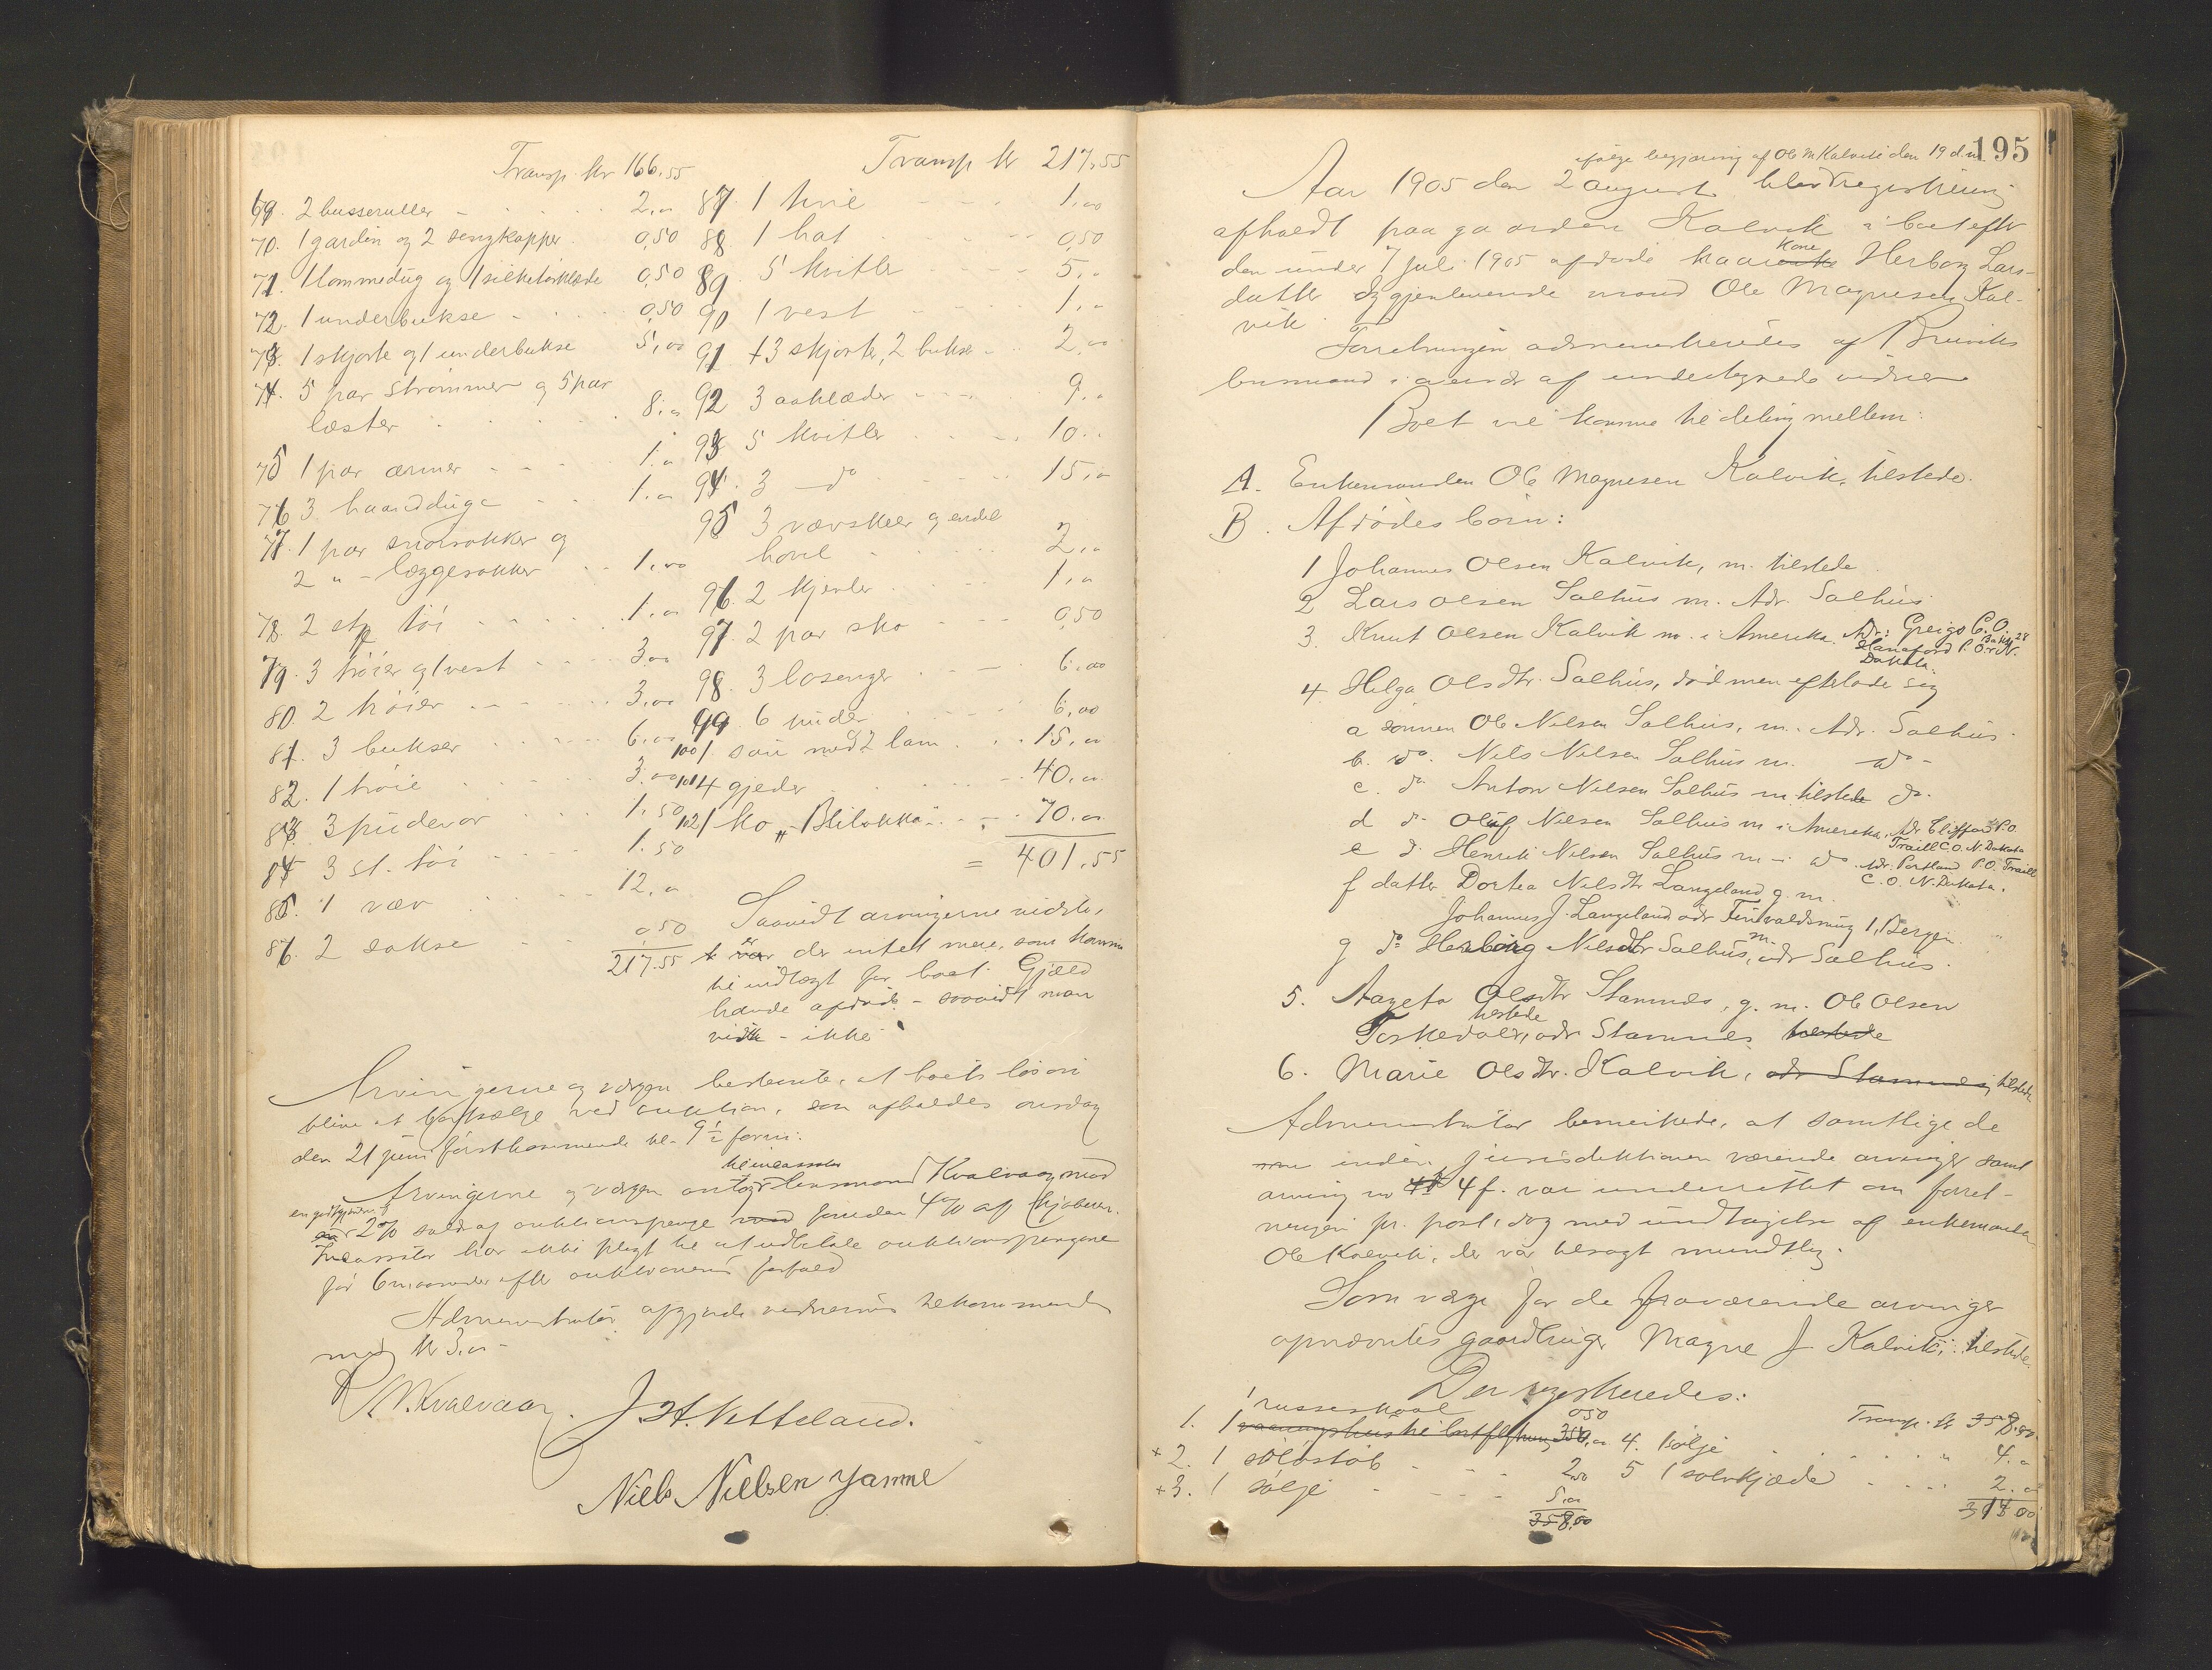 Transp. kr 166.55
69. 2 busseruller - 2,00
70. 1 gardin og 2 sengkapper 0,50
71. 1 lommedug og 1 silketørklæde 0,50
72. 1 underbukse 0,50
73. 1 skjorte og 1 underbukse 5,00
74. 5 par strømmer og 5 par
læster 8,00
75 1 par ærmer 1,00
76 3 haandduge 1,00
77. 1 par snørsokker og
2 " - læggesokker 1,00
78. 2 stp tøi 1,00
79. 3 trøier og 1 vest 3,00
80. 2 trøier 3,00
81. 3 bukser 6,00
82. 1 trøie 3,00
83 3 pudevar 1,50
84 3 st. tøi 1.50
85. 1 væv 12,00
86. 2 sakse 0,50
217.55
Transp kr 217,55
87. 1 kvil 1,00
88. 1 hat 0,50
89 5 kvitler 5,00
90 1 vest 1,00
91 3 skjorter, 2 bukser 2,00
92 3 aaklæder 9,00
93 5 kvitler 10,00
94. 3 do 15,00
95 3 vævskeer og endel
hovel 2,00
96. 2 kjevler 1,00
97. 2 par sko 0,50
98. 3 bosenger 6,00
99. 6 puder 6,00
100 1 sau med 2 lam 15,00
101 4 gjeder 40,00
102 1 ko „Blilokka" 70,00
= 401.55
Saavidt arvingerne vidste,
er der intet mere, som komme
til indtægt for boet. Gjæld
havde afdøde - saavidt man
vidste - ikke
Arvingerne og vergen bestemte, at boets løsøri
blive at bortsælge ved auktion, som afholdes onsdag
den 21 juni førstkommende kl. 9½ form:
til incassator
Arvingerne og vergen antog lensmand Kvalvaag mod
en godtgjørelse af
2% salær af auktionspenge foruden 4% af kjøberen.
Incassator har ikke pligt til at udbetale auktionspengene
før 6 maaneder efter auktionens forfald
Administrator afgjorde vidnernes tilkommende
med kr 3,00 -
P. M. Kvalvaag. J. H. Vetteland.
Niels Nielsen Jamne
195
ifølge begjæring af Ole M. Kalvik den 19 d.m.
Aar 1905 den 2 august blev registrering
afholdt paa gaarden Kalvik i boet efter
kone
den under 7 juli 1905 afdøde Herborg Lars-
datter og gjenlevende mand Ole Magnesen Kal-
vik.
Forretningen administreredes af Bruviks
lensmand i overvær af undertegnede vidner
Boet vil komme til deling mellem:
A. Enkemanden Ole Magnesen Kalvik, tilstede.
B. Afdødes børn:
1 Johannes Olsen Kalvik, m. tilstede.
2 Lars Olsen Salhus m. Adr. Salhus
3. Knut Olsen Kalvik m. i Amerika. Adr: Greigs C.O.
Hanaford P.O. N.
Dakota.
4 Helga Olsdtr. Salhus, død men efterlod sig
a sønnen Ole Nilsen Salhus, m. Adr. Salhus.
b. do. Nils Nilsen Salhus m. do -
c. do Anton Nilsen Salhus m. tilstede do.
d do Oluf Nilsen Salhus m i Amerika, Adr Cliffor P.O.
Traill C.O. N. Dakota
e do Henrik Nilsen Salhus m - i do Adr. Portland P.O. Traill
C.O. N. Dakota.
f datter Dortea Nilsdtr Langeland g. m.
Johannes J. Langeland adr Finvaldsmug 1, Bergen
g do Herborg Nilsdtr Salhus, m. adr Salhus.
5. Aageta Olsdtr Stamnes, g. m. Ole Olsen
tilstede
Toskedalen, adr Stamnes tilstede
6. Marie Olsdtr. Kalvik, adr Stamnes tilstede
Administrator bemerkede, at samtlige de
inden jurisdiktionen værende arvinger samt
arving no 4 f. var underrettet om forret-
ningen pr. post, dog med undtagelse af enkemanden
Ole Kalvik, der var tilsagt mundtlig.
Som verge for de fraværende arvinger
opnævntes gaardbruger Magne J Kalvik, tilstede.
Der registreredes:
1 russeskaal 050
1. 1 vaaningshus 350,00
+ 2. 1 sølvstøb 2,00
+ 3. 1 sølje 5,00
358,00
Transp. kr 358.00
4. 1 sølje 4,00
5 1 sølvkjæde 2,00